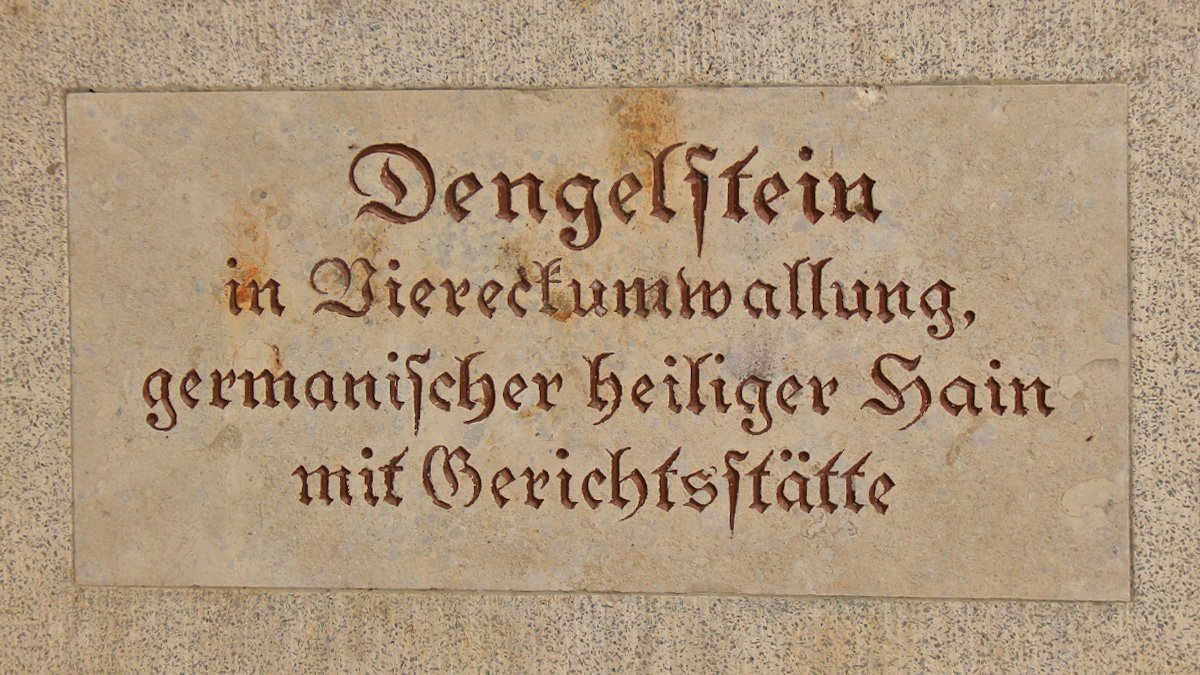 Dengelſtein
in Viereckumwallung,
germaniſcher heiliger Hain
mit Gerichtsſtätte